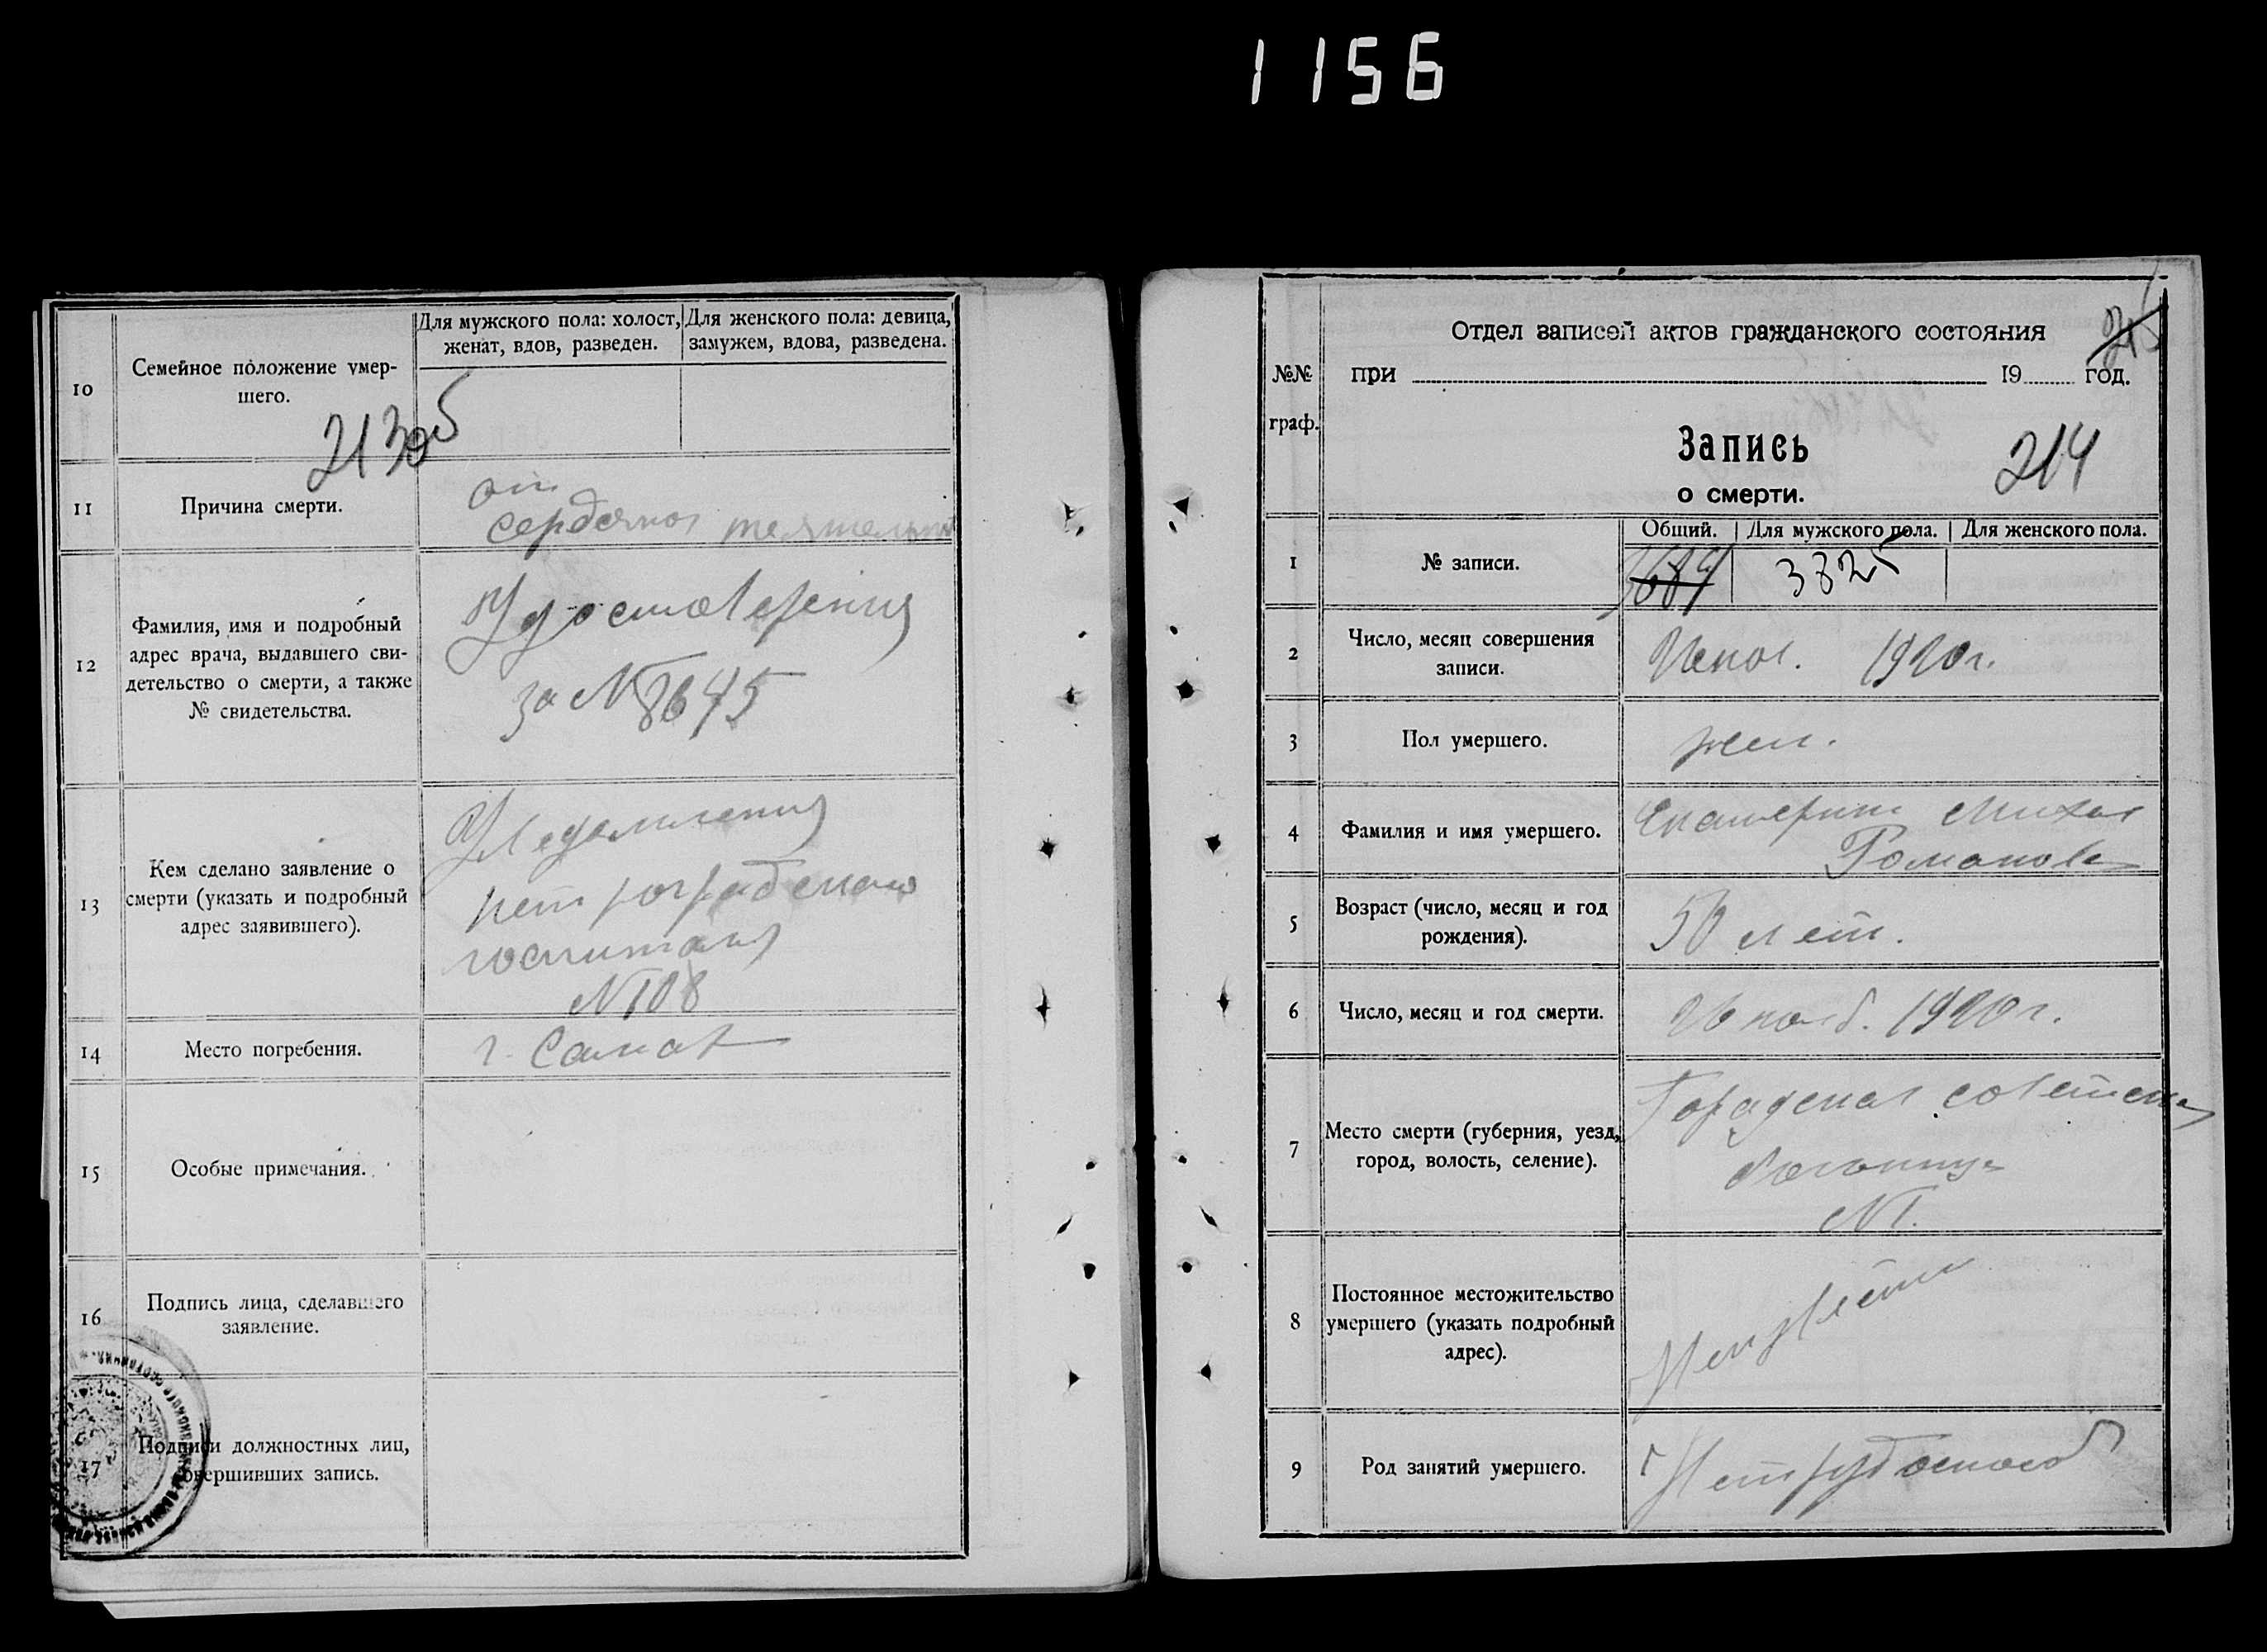 1156
10
Семейное положение умер-
шего.
Для мужского пола: холост,
женат, вдов, разведен.
Для женского пола: девица,
замужем, вдова, разведена.
213об
11
Причина смерти.
от
12
Фамилия, имя и подробный
адрес врача, выдавшего сви-
детельство о смерти, а также
№ свидетельства.
Удостоверения
за № 8645
13
Кем сделано заявление о
смерти (указать и подробный
адрес заявившего).
Уведомления
петроградского
госпиталя
№ 108
14
Место погребения.
г. Самара
15
Особые примечания.
16
Подпись лица, сделавшего
заявление.
17
Подписи должностных лиц,
совершивших запись.
№№
граф.
Отдел записей актов гражданского состояния
при 19 год.
215
Запись
о смерти.
214
1
№ записи.
Общий.
Для мужского пола.
Для женского пола.
3684
3825
2
Число, месяц совершения
записи.
1920 г.
3
Пол умершего.
жен.
4
Фамилия и имя умершего.
Романова
5
Возраст (число, месяц и год
рождения).
50 лет.
6
Число, месяц и год смерти.
1920 г.
7
Место смерти (губерния, уезд,
город, волость, селение).
Городская советская
больница
№ 1.
8
Постоянное местожительство
умершего (указать подробный
адрес).
9
Род занятий умершего.